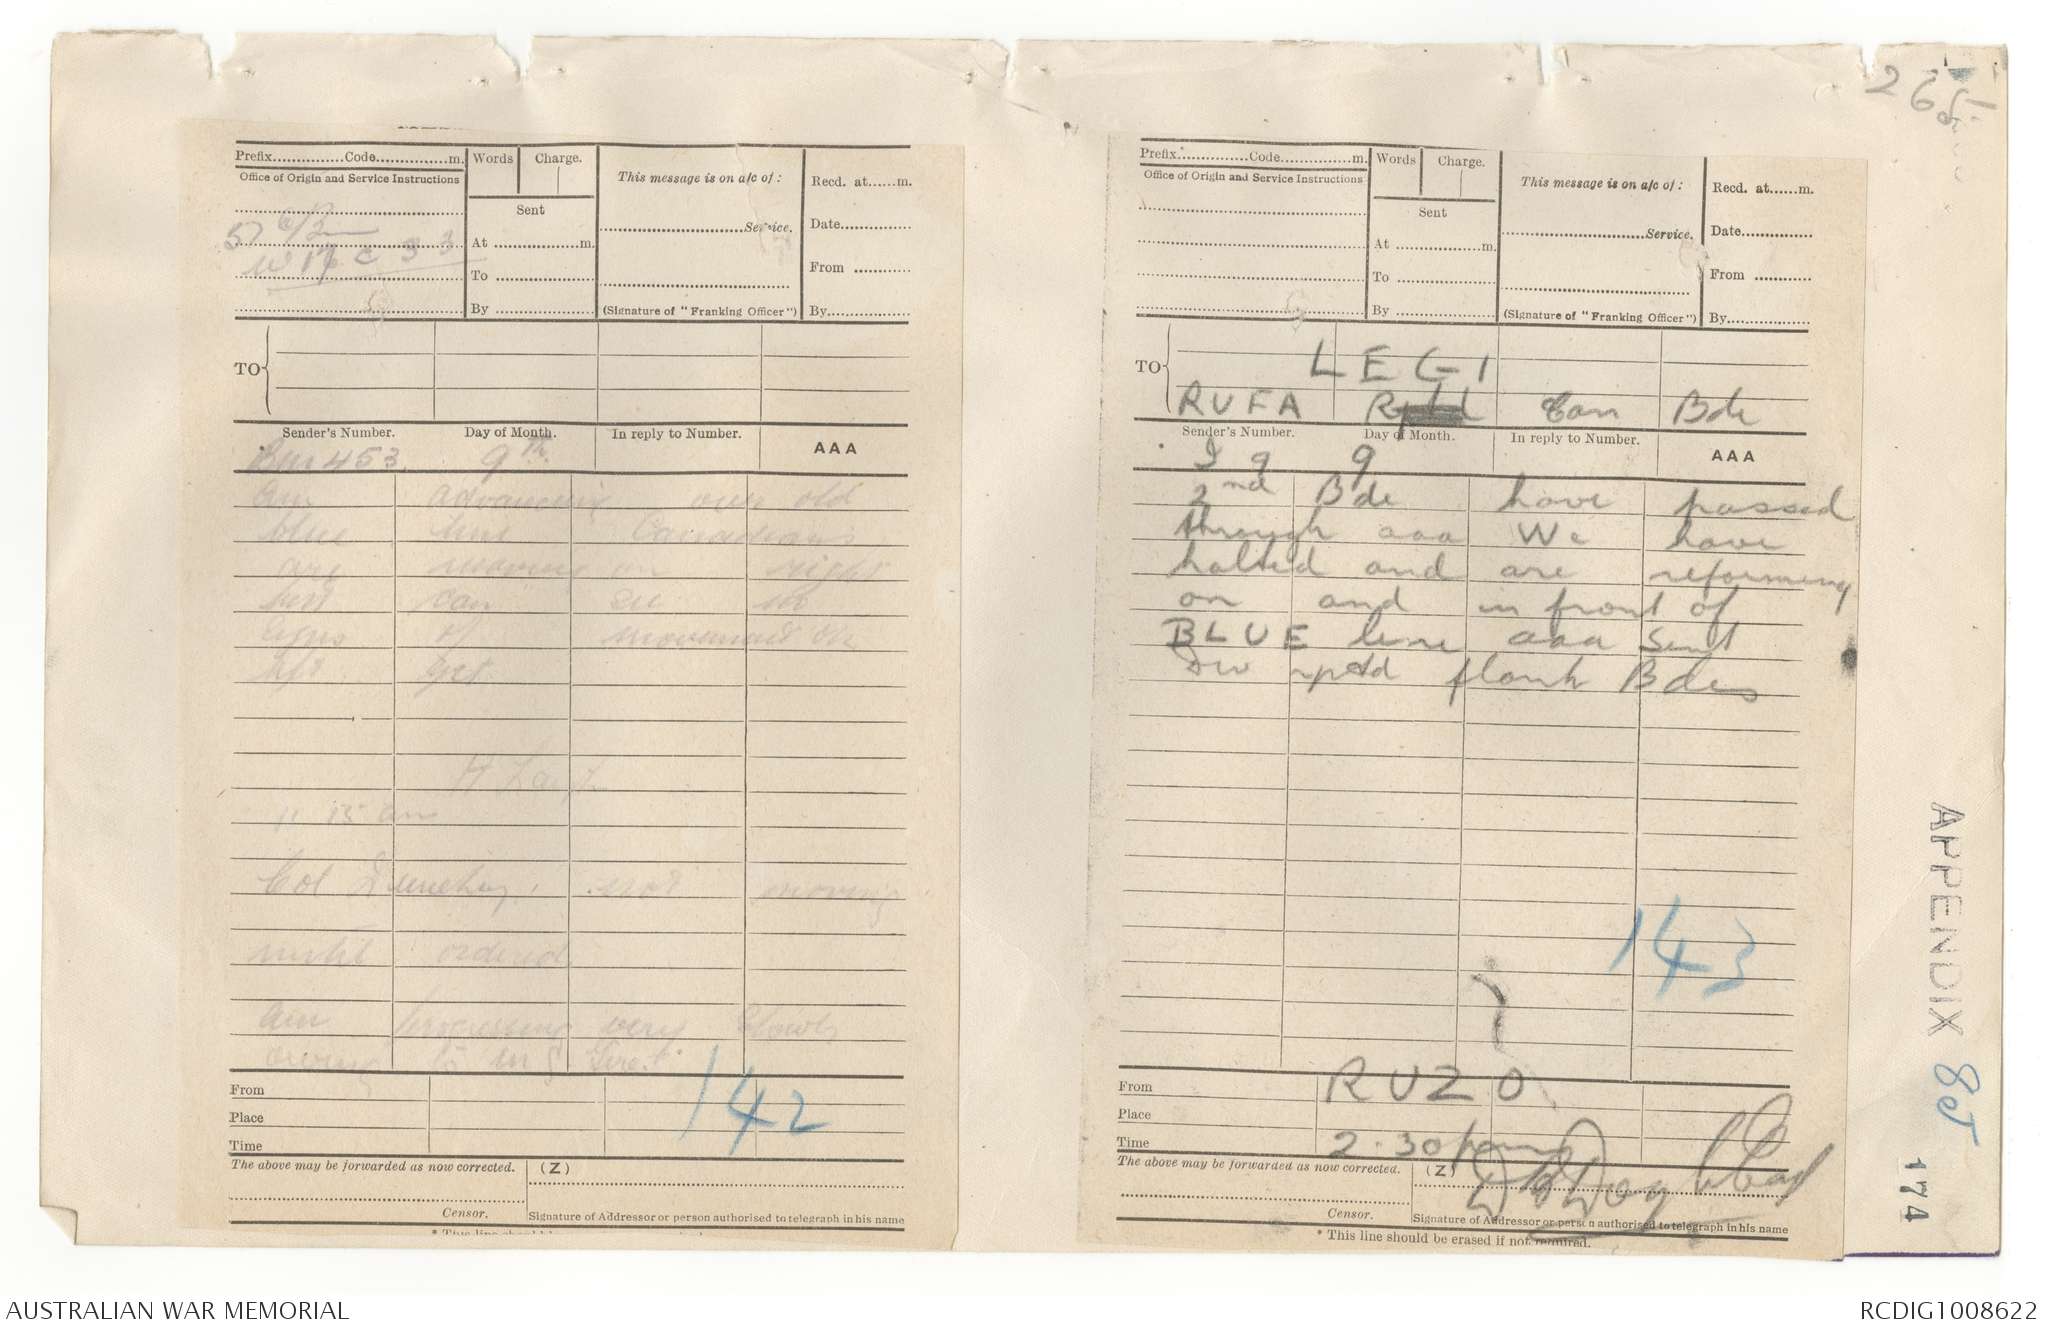 265
Prefix..............Code..............m.
Words
Charge.
This message is on a/c of :
Recd. at......m.
Office of Origin and Service Instructions
Sent
Service.
Date..............
57
W 17 c 3 3
At ..................m.
To ..................
From ............
By ..................
(Signature of "Franking Officer")
By..............
TO
Sender's Number.
Day of Month.
In reply to Number.
AAA
Bm 453
9th
am advancing over old
blue line Canadians
are moving on right
but can see no
signs of movement on
left yet
11 15 am
Col not moving
until ordered
am very slowly
owing to m g fire
142
From
Place
Time
The above may be forwarded as now corrected.
(Z)
Censor.
Signature of Addressor or person authorised to telegraph in his name
Prefix..............Code..............m.
Words
Charge.
This message is on a/c of :
Recd. at......m.
Office of Origin and Service Instructions
Sent
Service.
Date..............
At ..................m.
To ..................
From ............
By ..................
(Signature of "Franking Officer")
By..............
TO
LEGI
RUFA Can Bde
Sender's Number.
Day of Month.
In reply to Number.
AAA
I 9 9
2nd Bde have passed
through aaa We have
halted and are reforming
on and in front of
BLUE line aaa Sent
Div rptd flank Bdes
143
From
RUZO
Place
Time
2.30 pm
The above may be forwarded as now corrected.
(Z)
Censor.
Signature of Addressor or person authorised to telegraph in his name
* This line should be erased if not required.
APPENDIX 85
174
AUSTRALIAN WAR MEMORIAL
RCDIG1008622